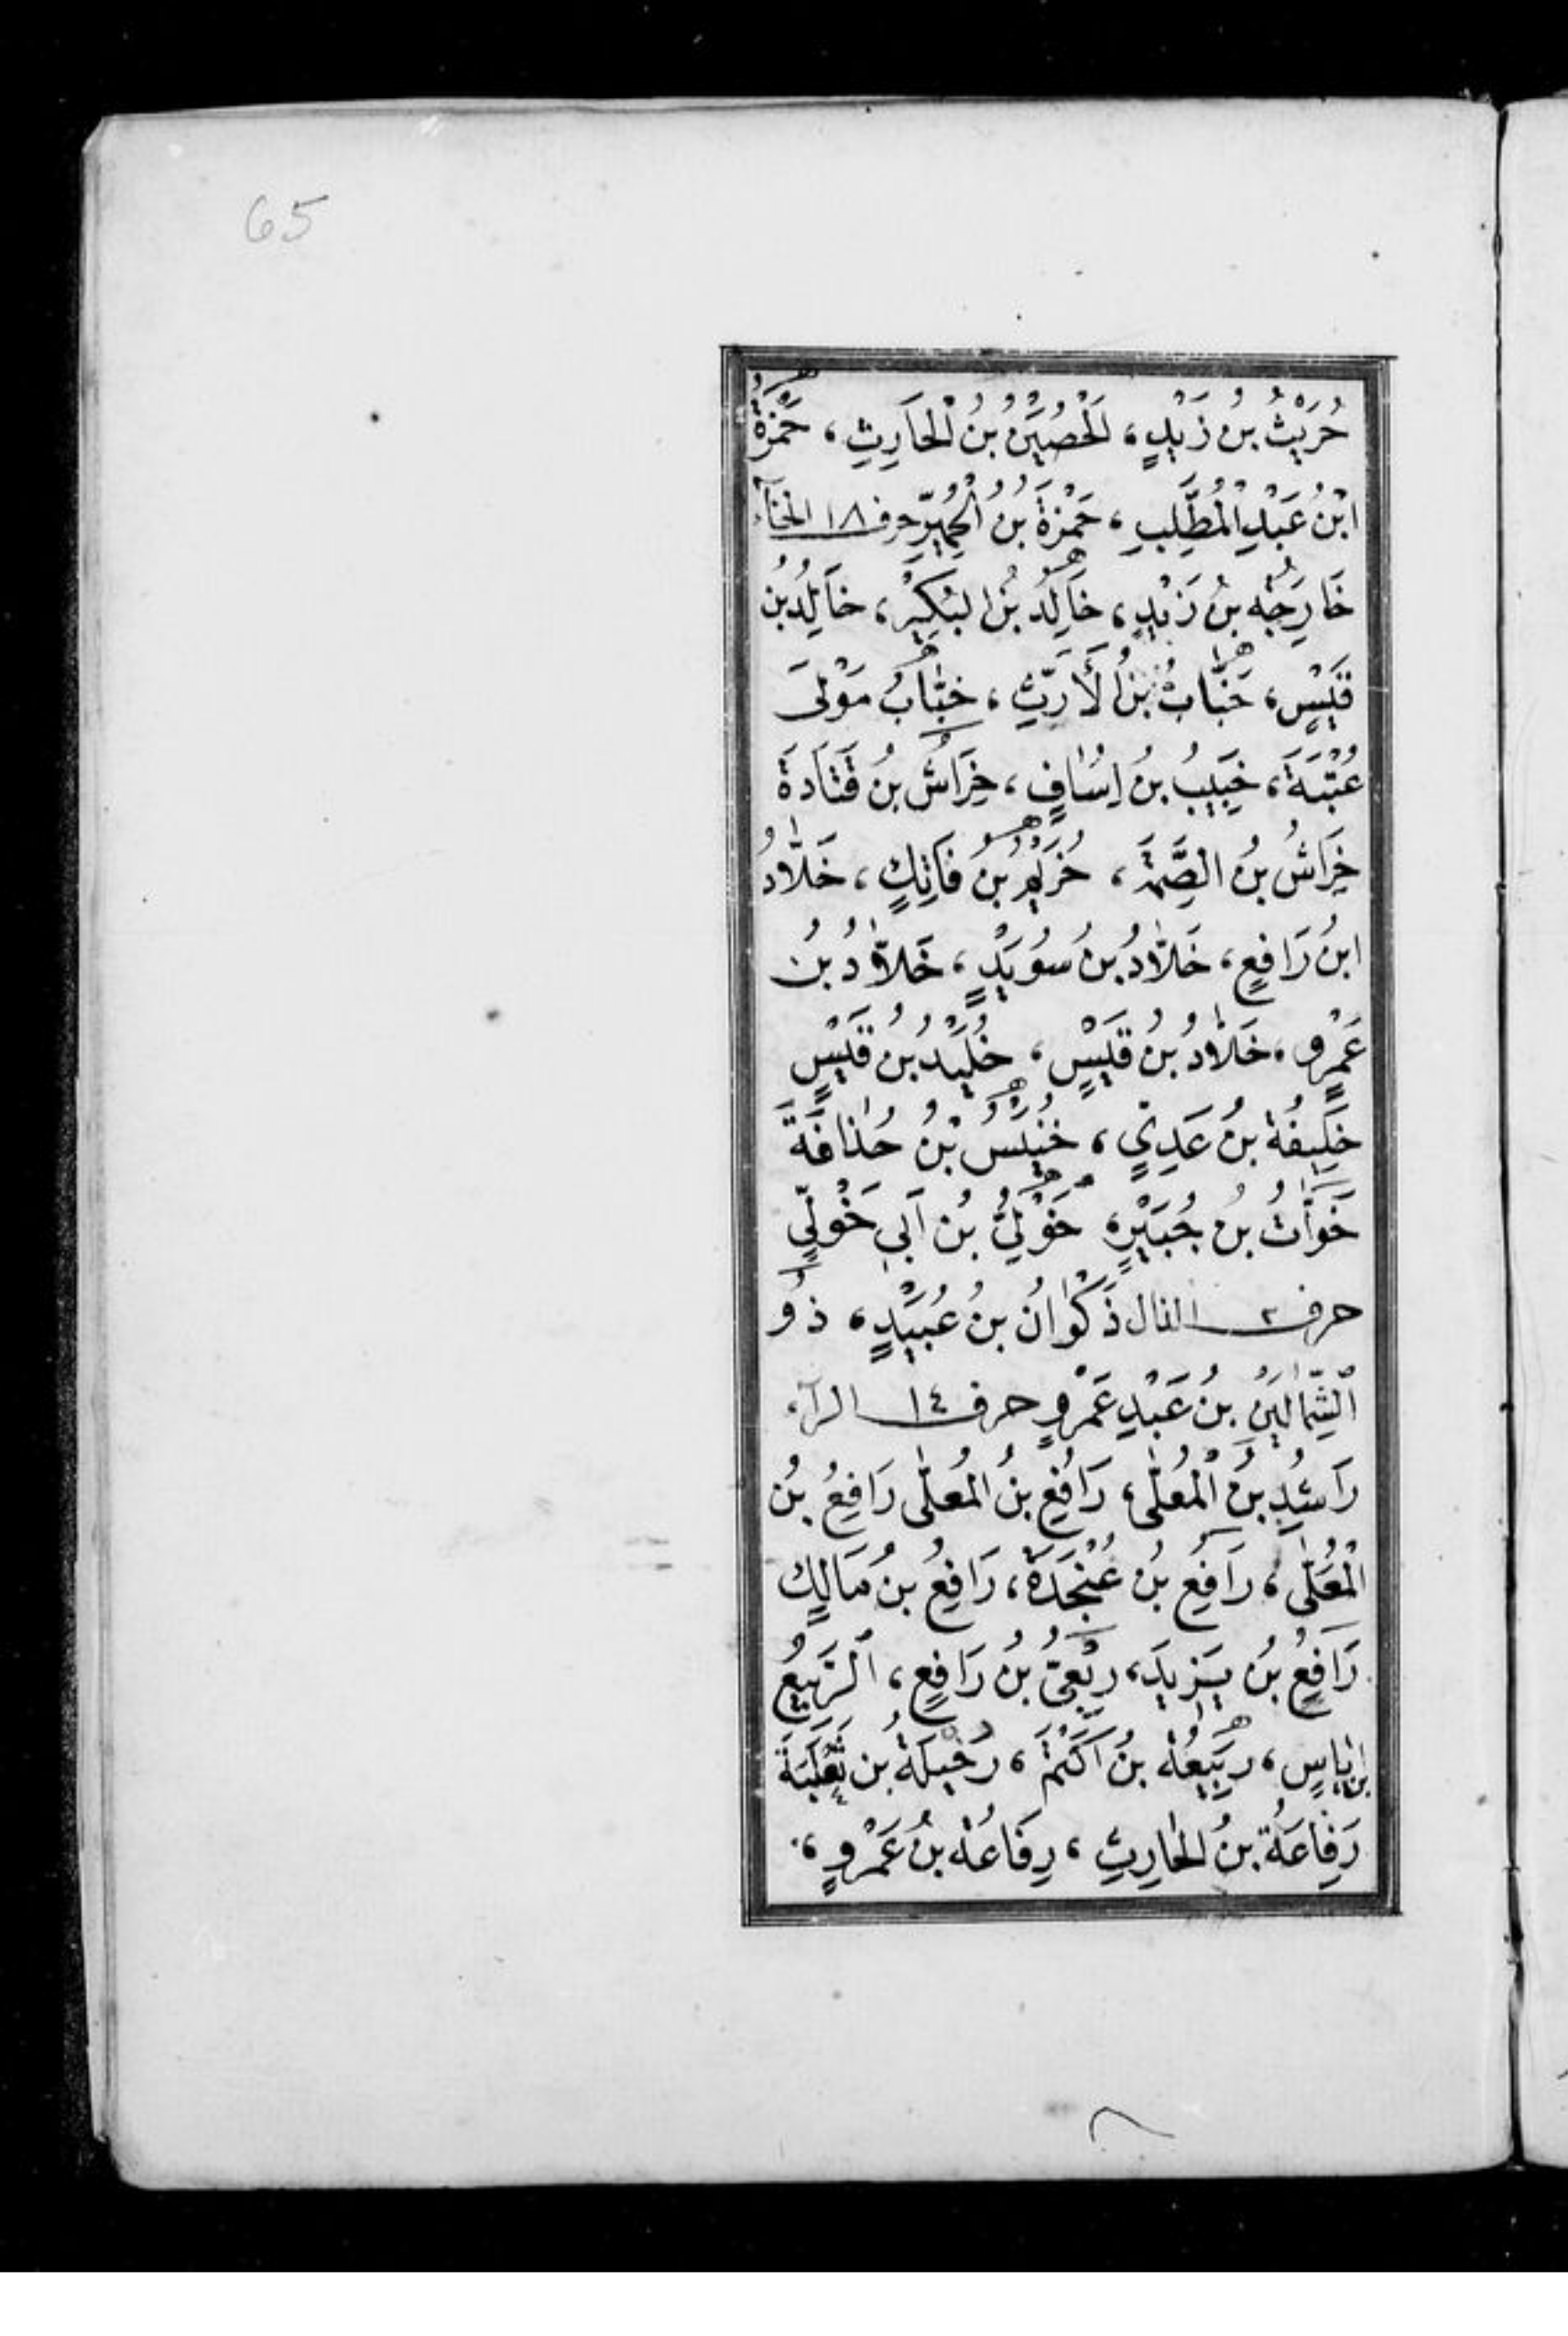 65
حُرَيْثُ بْنُ زَيْدٍ، اَلْحُصَيْنُ بْنُ الْحَارِثِ، حَمْزَةُ
ابْنُ عَبْدِ الْمُطَّلِبِ، حَمْزَةُ بْنُ الْحُمَيِّرِ حرف ١٨ الخآء
خَارِجَةُ بْنُ زَيْدٍ، خَالِدُ بْنُ الْبُكَيْرِ، خَالِدُ بْنُ
قَيْسٍ، خَبَّابُ بْنُ الْأَرَتِّ، خَبَّابُ مَوْلَى
عُتْبَةَ، خُبَيْبُ بْنُ اِسَافٍ، خِرَاشُ بْنُ قَتَادَةَ
خِرَاشُ بْنُ الصِّمَّةِ، خُرَيْمُ بْنُ فَاتِكٍ، خَلَّادُ
ابْنُ رَافِعٍ، خَلَّادُ بْنُ سُوَيْدٍ، خَلَّادُ بْنُ
عَمْرٍو، خَلَّادُ بْنُ قَيْسٍ، خُلَيْدُ بْنُ قَيْسٍ
خَلِيفَةُ بْنُ عَدِيٍّ، خُنَيْسُ بْنُ حُذَافَةَ
خَوَّاتُ بْنُ جُبَيْرٍ، خَوْلِيُّ بْنُ اَبِي خَوْلِيٍّ
حرف ٢ الذال ذَكْوَانُ بْنُ عُبَيْدٍ، ذُو
الشِّمَالَيْنِ بْنُ عَبْدِ عَمْرٍو حرف ١٤ الرآء
رَاشِدُ بْنُ الْمُعَلَّى، رَافِعُ بْنُ الْمُعَلَّى رَافِعُ بْنُ
الْمُعَلَّى، رَافِعُ بْنُ عُنْجُدَةَ، رَافِعُ بْنُ مَالِكٍ
رَافِعُ بْنُ يَزِيدَ، رِبْعِيُّ بْنُ رَافِعٍ، اَلرَّبِيعُ
بْنُ اِيَاسٍ، رَبِيعَةُ بْنُ اَكْثَمَ، رُخَيْلَةُ بْنُ ثَعْلَبَةَ
رِفَاعَةُ بْنُ الْحَارِثِ، رِفَاعَةُ بْنُ عَمْرٍو،
٨